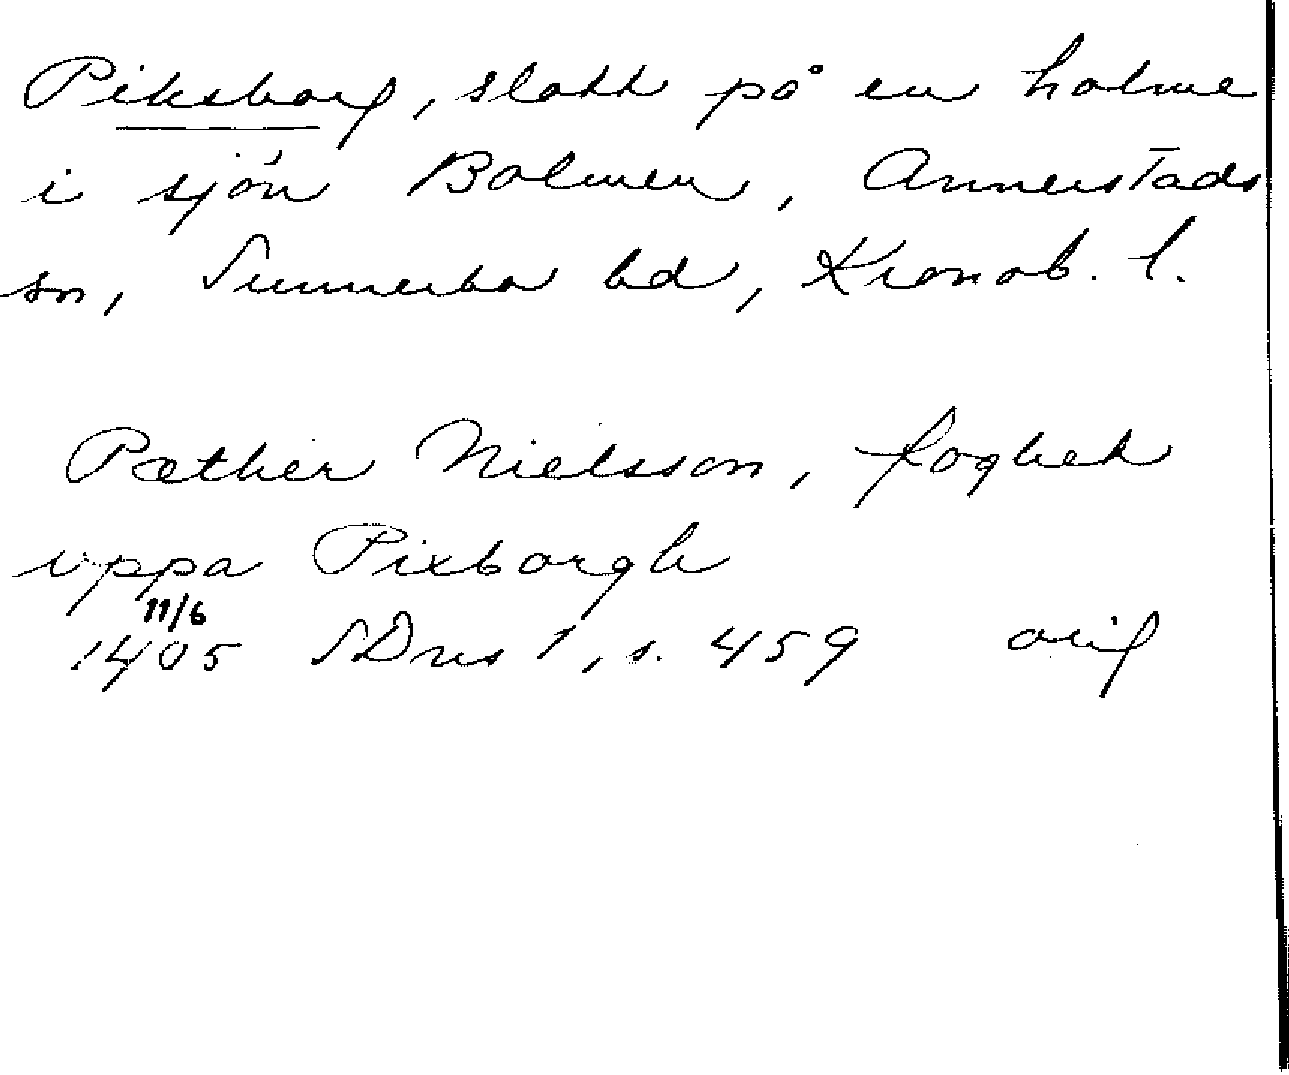 Piksborg, slott på en holme
i sjön Bolmen, Annerstads
sn, Sunnerbo hd, Kronob. l.
Pæther Nielsson, foghet
vppa Pixborgh
11/6
1405 SDns 1, s. 459 orig